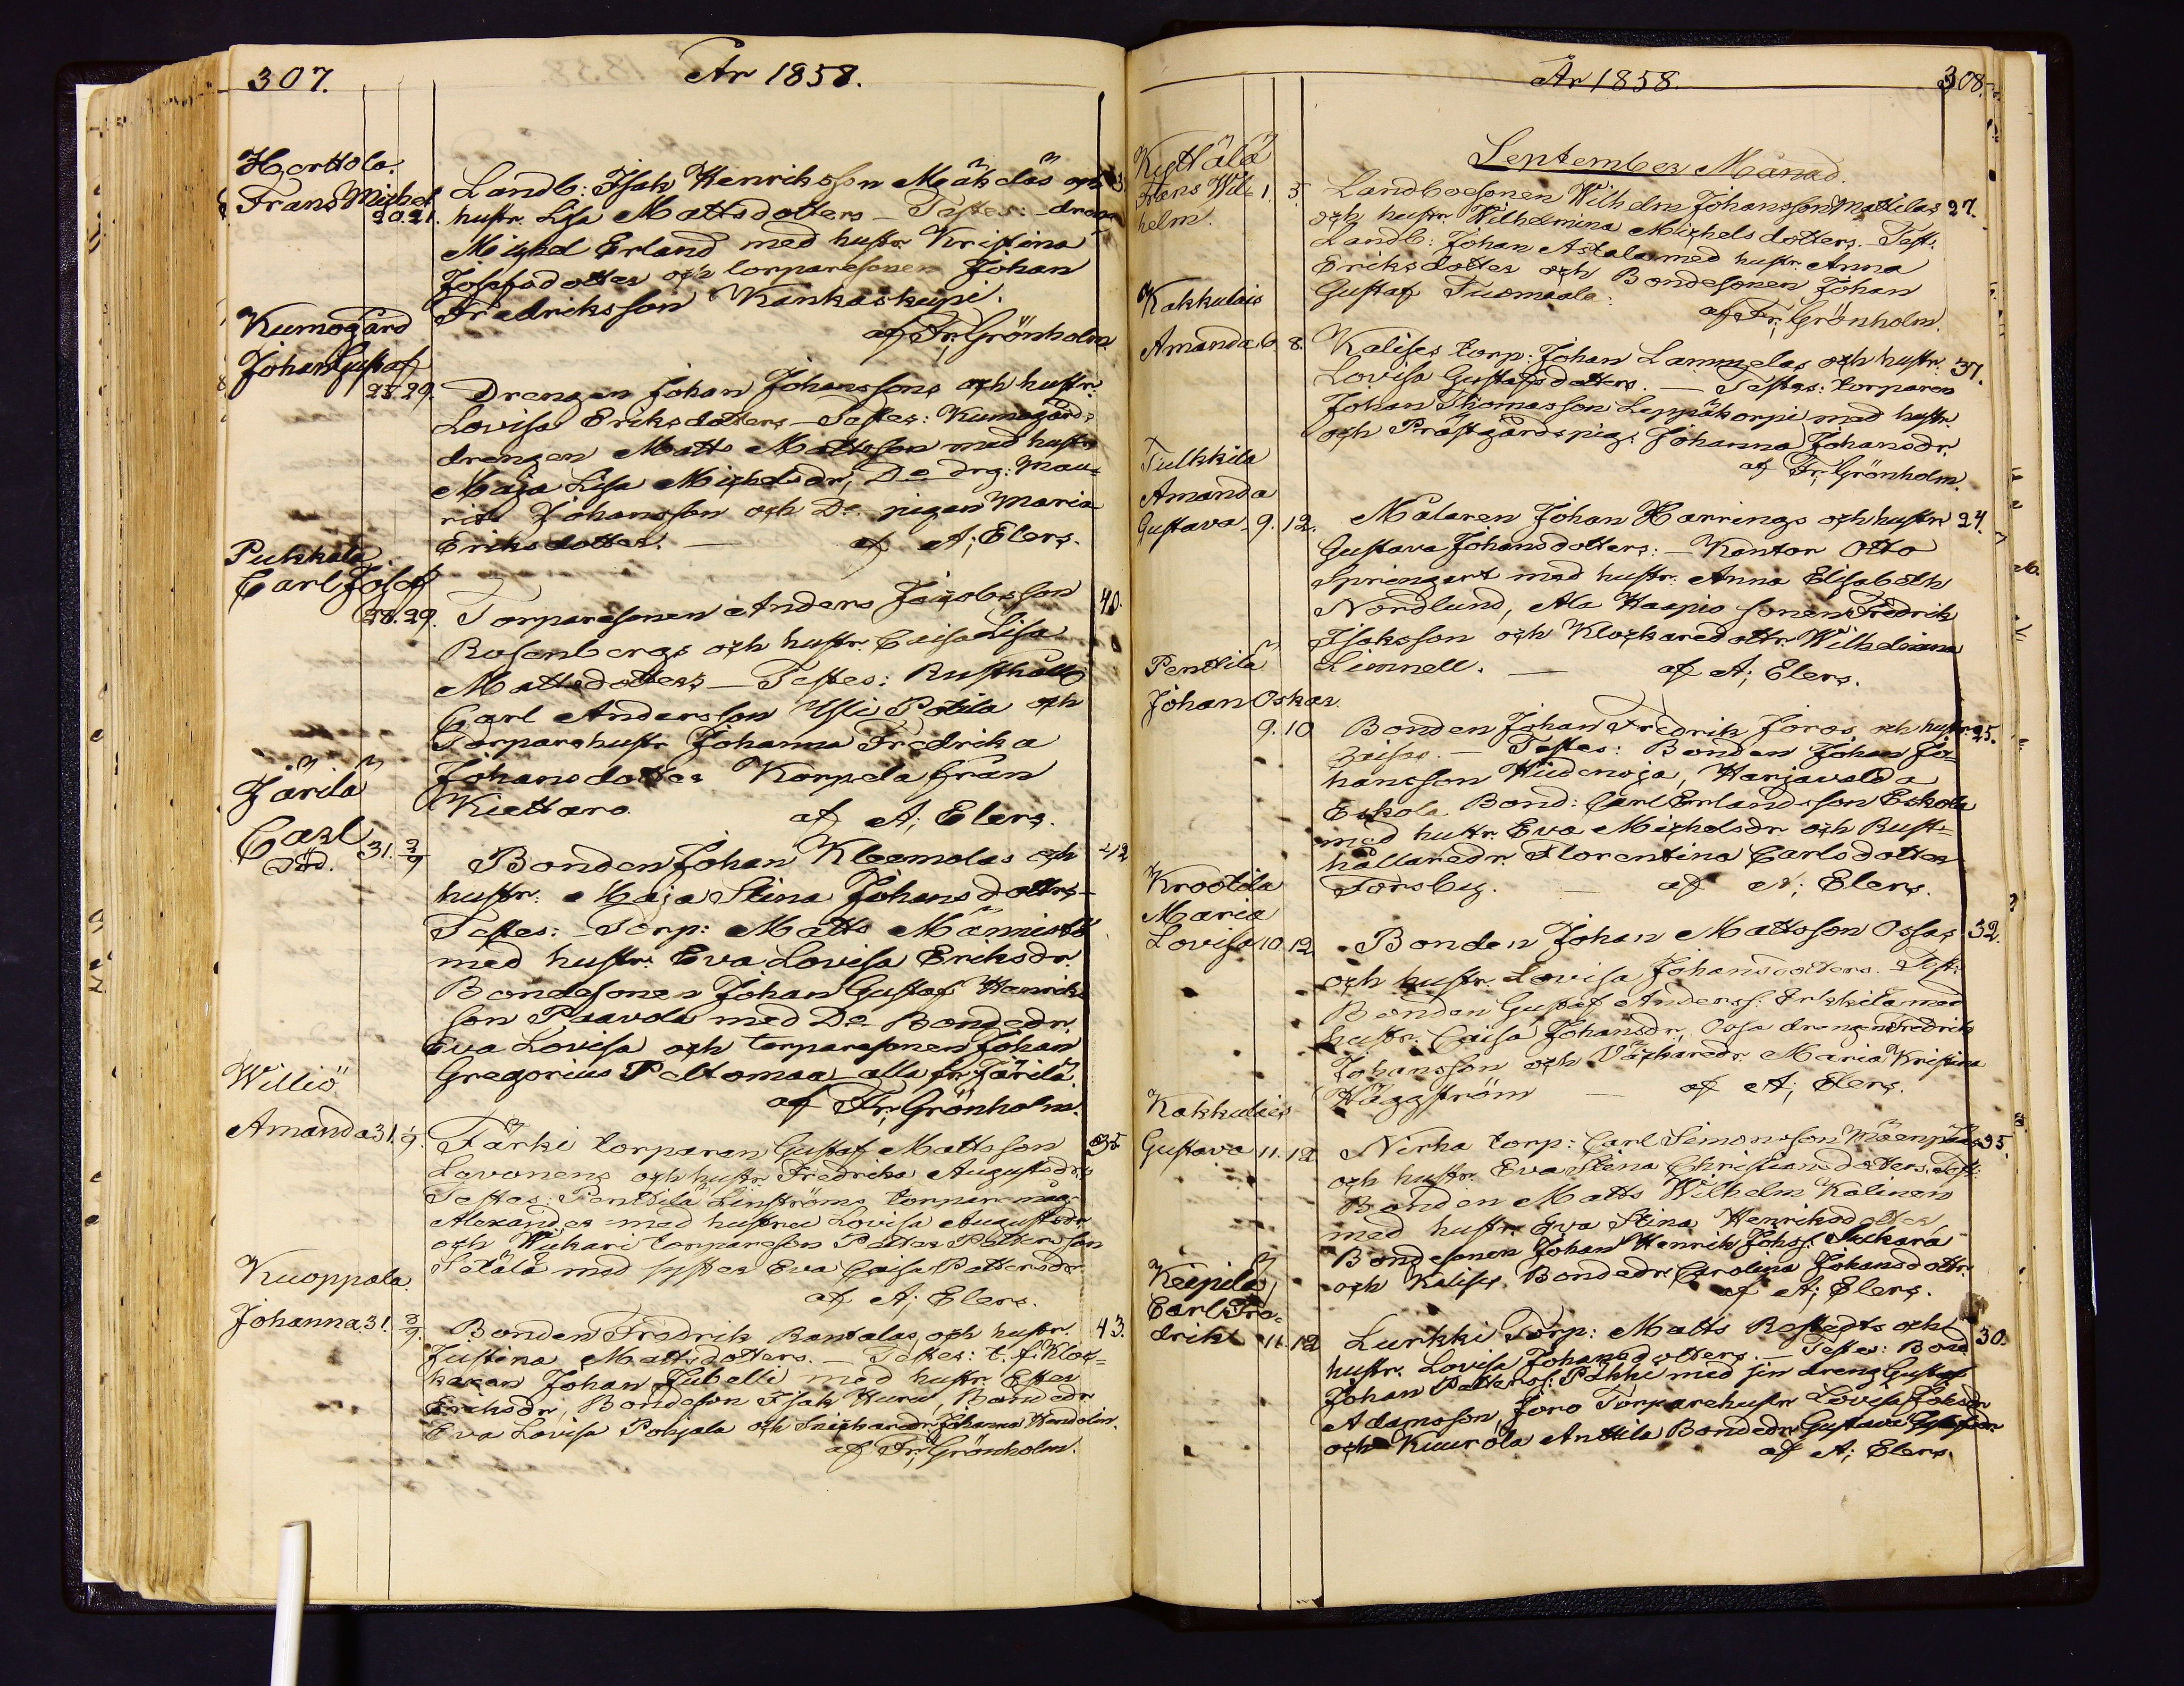 307.
År 1858.
Herttola.
Frans Michel
20. 21.
Landb: Isak Henriksson Mäkeläs och
hustr. Lisa Mattsdotters – Testes: dreng
Michel Erland med hustr Kristina
Josefsdotter och torparesonen Johan
Fredriksson Kankaskupi.
af Fr; Grönholm
Kumogård
Johan Gustaf
28. 29.
Drengen Johan Johanssons och hustr:
Lovisa Eriksdotters – Testes: Kumogårds
drengen Matts Mattsson med hustr
Maja Lisa Michelsdr, Do drg: Mau-
ritz Johansson och Do pigan Maria
Eriksdotter. — af A; Elers.
Pukkala
Carl Josef
28. 29.
Torparesonen Anders Jacobsson 40.
Rosenbergs och hustr. Caisa Lisa
Mattsdotters – Testes: Rusthåll
Carl Andersson Yli Potila och
Torparehustr Johanna Fredrika
Johansdotter Korpela från
Kiettare. af A; Elers.
Järilä
Carl
Död. 31. 2/9
Bonden Johan Kleemolas och 42
hustr: Maja Stina Johansdottrs –
Testes: – Torp: Matts Männistö
med hustr. Eva Lovisa Eriksdr.
Bondesonen Johan Gustaf Henriks
son Paavola med Do Bondedr.
Eva Lovisa och torparesonen Johan
Gregorius Peltomaa alla fr. Järilä.
af Fr; Grönholm.
Williö
Amanda 31. 1/9.
Färki torparen Gustaf Mattsson 35
Lovonens och hustr. Fredrika Augustsdrs
Testes: Penttilä Linströms torpare måg
Alexander med hustru Lovisa Augustsdr
och Wukari torpareson Petter Pettersson
Sätälä med syster Eva Caisa Pettersdr
af A; Elers.
Kuoppala.
Johanna 31. 3/9.
Bonden Fredrik Rantalas och hustr. 43.
Justina Mattsdotters. – Testes: t. f. Kloc-
karen Johan Jubelli med hustr. Ester
Eriksdr, Bondeson Isak Huru, Bondedr
Eva Lovisa Pohjala och Snickaredr Johanna Wendolin.
af Fr; Grönholm.
År 1858.
308.
September Månad.
Kyttälä
Frans Wil- 1. 5.
helm.
Landboesonen Wilhelm Johansson Mattilas 27.
och hustr. Wilhelmina Michelsdotters. – Test:
Landb: Johan Astala med hustr. Anna
Eriksdotter och Bondesonen Johan
Gustaf Tuomaala.
af Fr; Grönholm.
Kakkulais
Amanda 6. 8.
Kalises torp: Johan Lammelas och hustr. 37.
Lovisa Gustafsdotters. – Testes: torparen
Johan Thomasson Leppäkorpi med hustr.
och Prästgårdspig: Johanna Johansdr.
af Fr; Grönholm.
Tulkkila
Amanda
Gustava 9. 12.
Målaren Johan Harrings och hustr. 24.
Gustava Johansdotters: – Kantor Otto
Springert med hustr. Anna Elisabeth
Nordlund, Ala Haapio sonen Fredrik
Isaksson och Klockaredottr. Wilhelmina
Limnell. — af A; Elers.
Penttilä
Johan Oskar
9. 10
Bonden Johan Fredrik Joros och hustr 25.
Caisas. – Testes: Bonden Johan Jo-
hansson Hiidenoja, Harjavalda
Eskola Bond: Carl Erlandsson Eskola
med hustr. Eva Michelsdr och Rust-
hållaredr. Florentina Carlsdotter
Forsbeg. — af A; Elers.
Krootila
Maria
Lovisa 10. 12.
Bonden Johan Mattsson Ossas 32.
och hustr. Lovisa Johansdotters. – Test:
Bonden Gustaf Anderss: Erkkilä med
hustr. Caisa Johansdr, Ossa drengen Fredrik
Johansson och Väfharedr. Maria Kristina
Häggström — af A; Elers.
Kakkulais
Gustava 11. 12.
Nirha torp: Carl Simonsson Mäenpääs 35.
och hustr. Eva Stina Christiansdotters. Test:
Bonden Matts Wilhelm Kalinen
med hustr. Eva Stina Henriksdotter,
Bondesonen Johan Henrik Johss:
och Kalises Bondedr. Carolina Johansdottr.
af A; Elers.
Keipilä,
Carl Fre-
drik 11. 12
Lurkki Torp: Matts Rostedts och 30.
hustr. Lovisa Johansdotters. – Testes: Bond
Johan Petterss: Pahki med sin dreng Gustaf
Adamsson Joro Torparehustr Lovisa Johsdr
och Kuurola Anttila Bondedr. Gustava
af A; Elers.